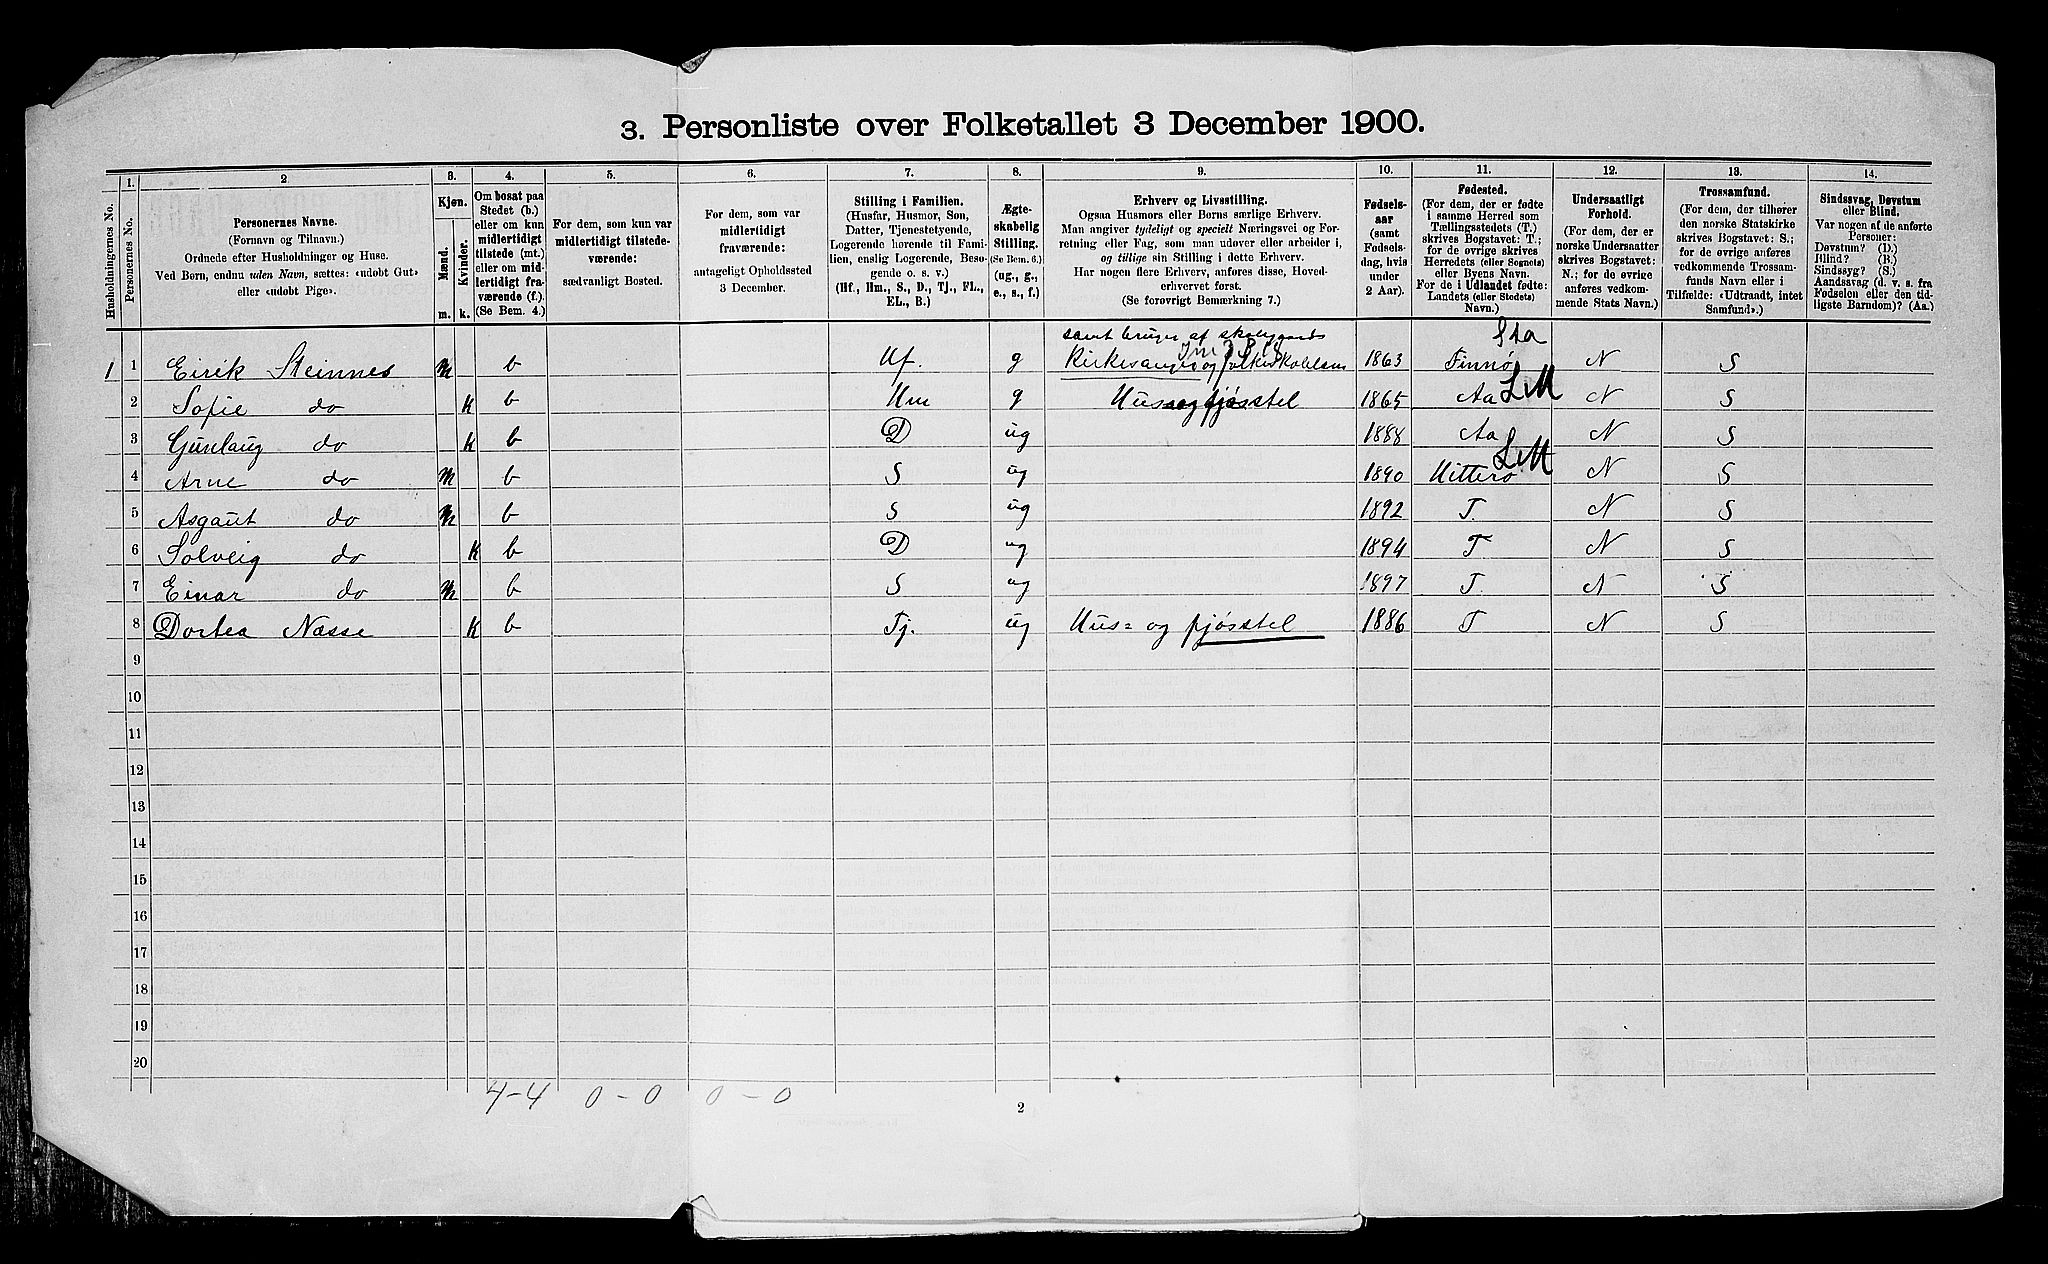 3. Personliste over Folketallet 3 December 1900.
1. 2. 3. 4. 5. 6. 7. 8. 9. 10. 11. 12. 13. 14.
Husholdningernes No.
Personernes No.
Personernes Navne.
(Fornavn og Tilnavn.)
Ordnede efter Husholdninger og Huse.
Ved Børn, endnu uden Navn, sættes: «udøbt Gut»
eller «udøbt Pige».
Kjøn.
Mænd.
Kvinder.
m. k.
Om bosat paa
Stedet (b.)
eller om kun
midlertidigt
tilstede (mt.)
eller om mid-
lertidigt fra-
værende (f.).
(Se Bem. 4.)
For dem, som kun var
midlertidigt tilstede-
værende:
sædvanligt Bosted.
For dem, som var
midlertidigt
fraværende:
antageligt Opholdssted
3 December.
Stilling i Familien.
(Husfar, Husmor, Søn,
Datter, Tjenestetyende,
Logerende hørende til Fami-
lien, enslig Logerende, Besø-
gende o. s. v.)
(Hf., Hm., S., D., Tj., FL.,
EL., B.)
Ægte-
skabelig
Stilling.
(Se Bem. 6.)
(ug., g.,
e., s., f.)
Erhverv og Livsstilling.
Ogsaa Husmors eller Børns særlige Erhverv.
Man angiver tydeligt og specielt Næringsvei og For-
retning eller Fag, som man udøver eller arbeider i,
og tillige sin Stilling i dette Erhverv.
Har nogen flere Erhverv, anføres disse, Hoved-
erhvervet først.
(Se forøvrigt Bemærkning 7.)
Fødsels-
aar
(samt
Fødsels-
dag, hvis
under
2 Aar).
Fødested.
(For dem, der er fødte
i samme Herred som
Tællingsstedets (T.)
skrives Bogstavet: T.;
for de øvrige skrives
Herredets (eller Sognets)
eller Byens Navn.
For de i Udlandet fødte:
Landets (eller Stedets)
Navn.)
Undersaatligt
Forhold.
(For dem, der er
norske Undersaatter
skrives Bogstavet:
N.; for de øvrige
anføres vedkom-
mende Stats Navn.)
Trossamfund.
(For dem, der tilhører
den norske Statskirke
skrives Bogstavet: S.;
for de øvrige anføres
vedkommende Trossam-
funds Navn eller i
Tilfælde: «Udtraadt, intet
Samfund».)
Sindssvag, Døvstum
eller Blind.
Var nogen af de anførte
Personer:
Døvstum? (D.)
Blind? (B.)
Sindssyg? (S.)
Aandssvag (d. v. s. fra
Fødselen eller den tid-
ligste Barndom)? (Aa.)
samt bruger af skolegaards Sta
1 1 Eirik Steinnes m b Hf. g Kirkesanger og folkeskolelærer 1863 Finnø N S
2 Sofie do k b Hm g Hus og fjøsstel 1865 Aa LM N S
3 Gunlaug do k b D ug 1888 Aa N S
4 Arne do m b S ug 1890 Hitterø LM N S
5 Asgaut do m b S ug 1892 T. N S
6 Solveig do k b D ug 1894 T N S
7 Einar do m b S ug 1897 T. N S
8 Dortea Næsse k b Tj. ug Hus= og fjøsstel 1886 T N S
9
10
11
12
13
14
15
16
17
18
19
20
4-4 0-0 0-0
2